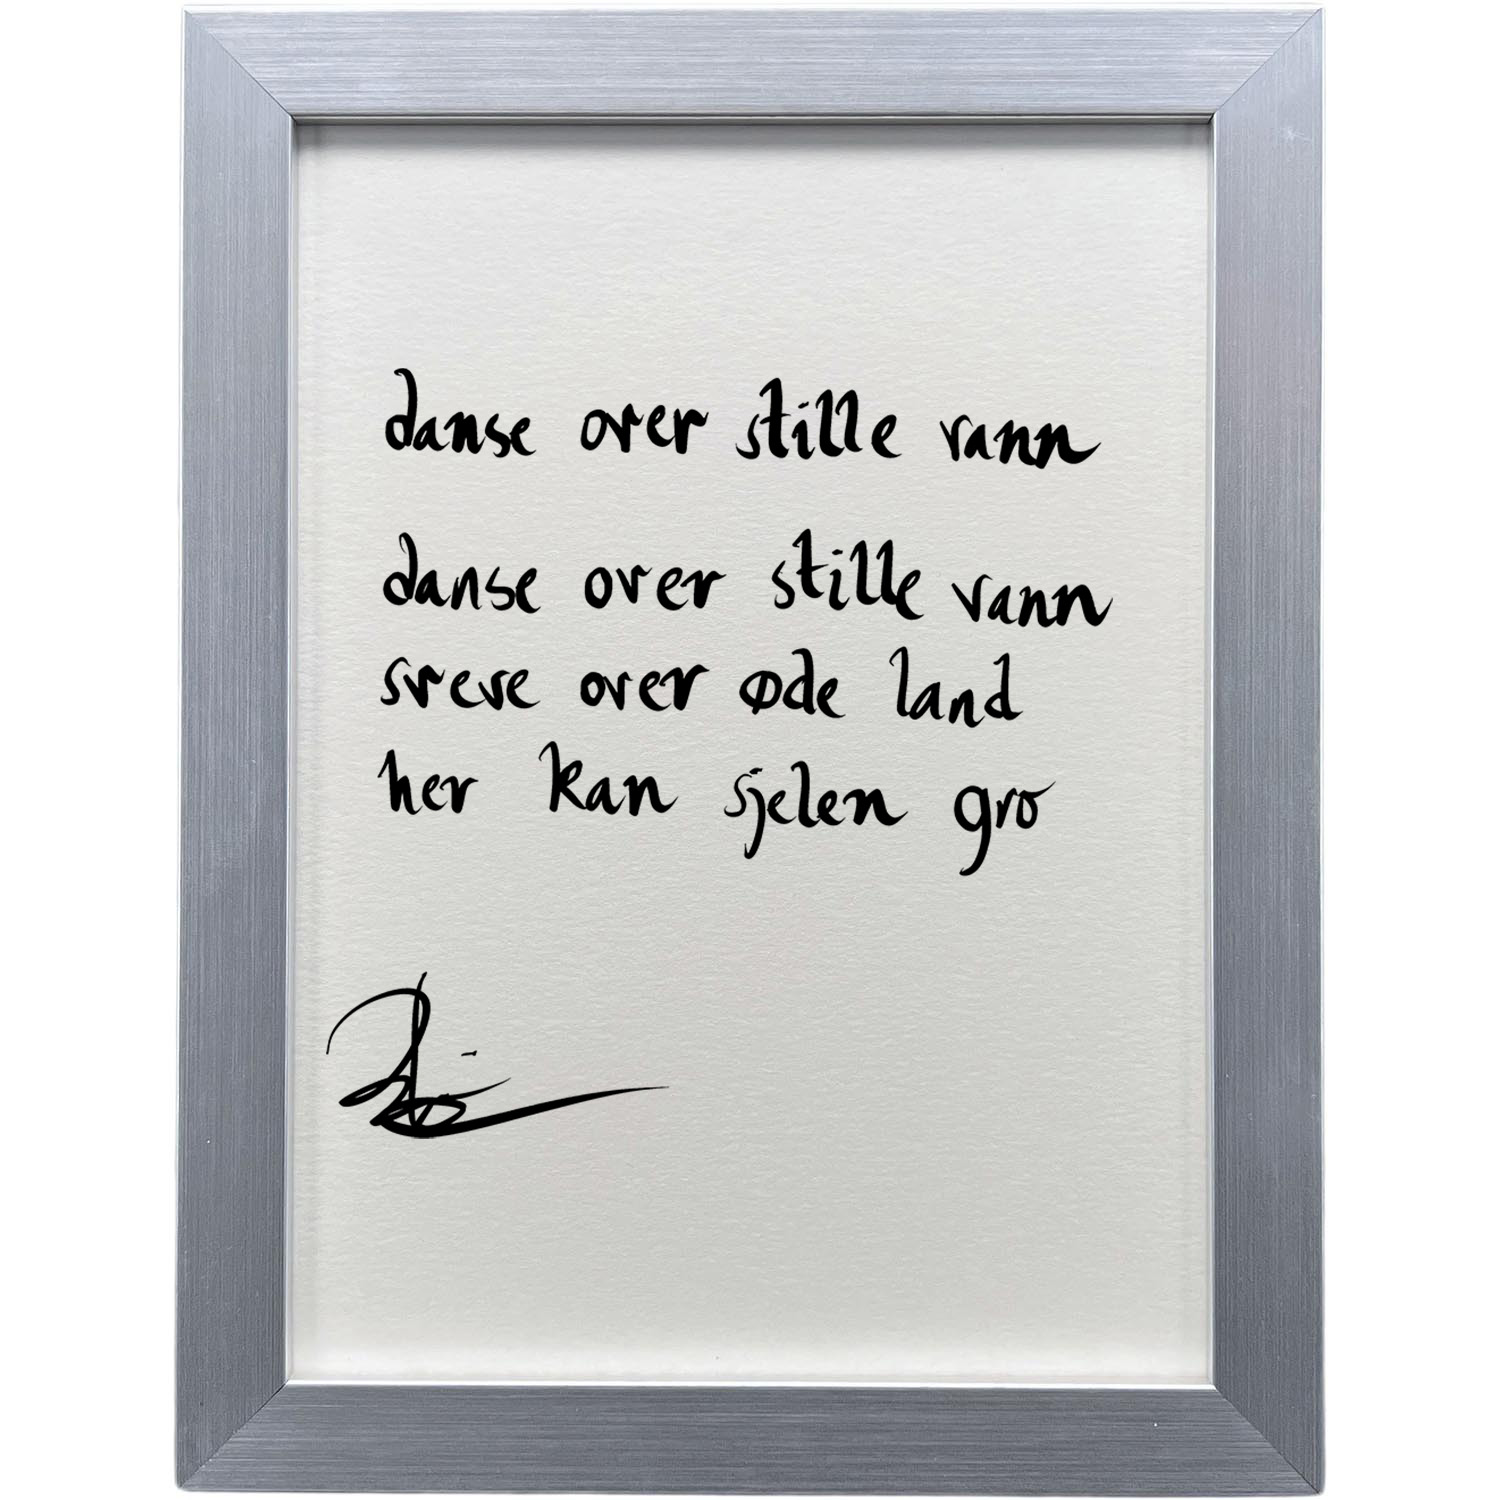 danse over stille vann
danse over stille vann
sveve over øde land
her kan sjelen gro